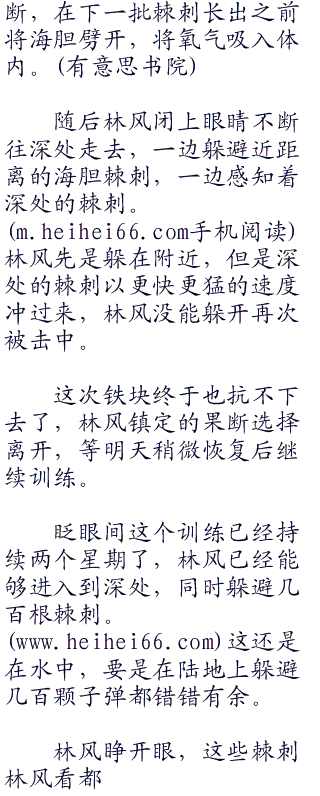 断，在下一批棘刺长出之前
将海胆劈开，将氧气吸入体
内。(有意思书院)
随后林风闭上眼睛不断
往深处走去，一边躲避近距
离的海胆棘刺，一边感知着
深处的棘刺。
(m.heihei66.com手机阅读)
林风先是躲在附近，但是深
处的棘刺以更快更猛的速度
冲过来，林风没能躲开再次
被击中。
这次铁块终于也抗不下
去了，林风镇定的果断选择
离开，等明天稍微恢复后继
续训练。
眨眼间这个训练已经持
续两个星期了，林风已经能
够进入到深处，同时躲避几
百根棘刺。
(www.heihei66.com)这还是
在水中，要是在陆地上躲避
几百颗子弹都错错有余。
林风睁开眼，这些棘刺
林风看都